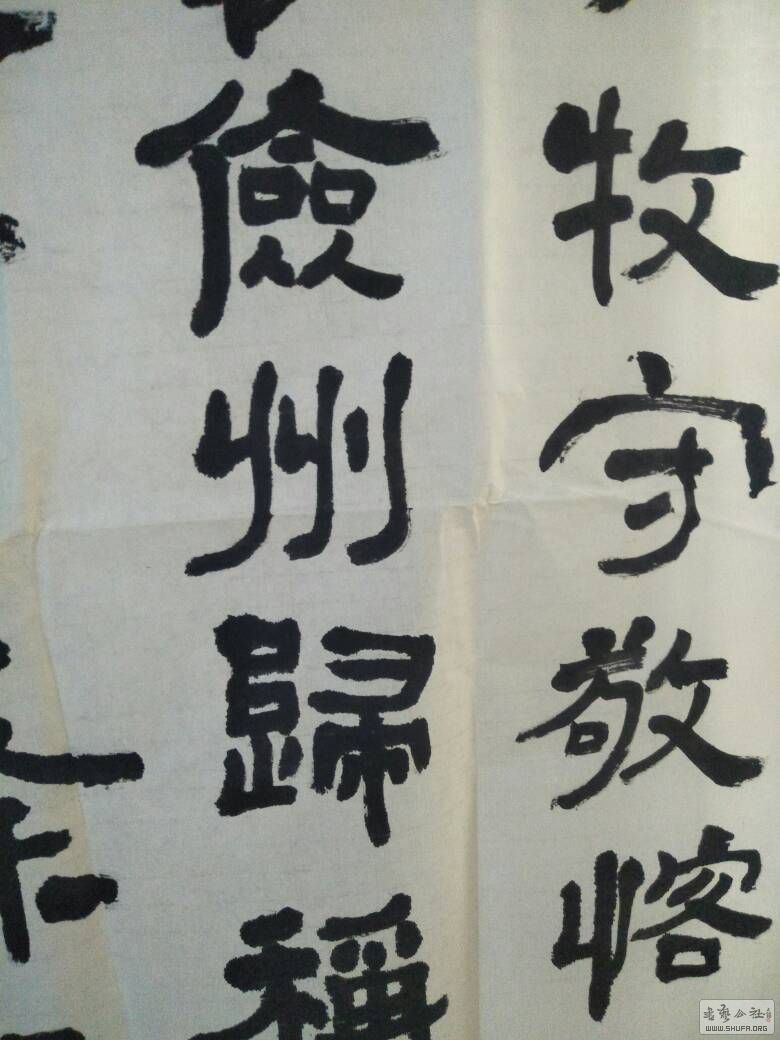 牧守敬愘
儉州歸稱
書藝公社
WWW.SHUFA.ORG